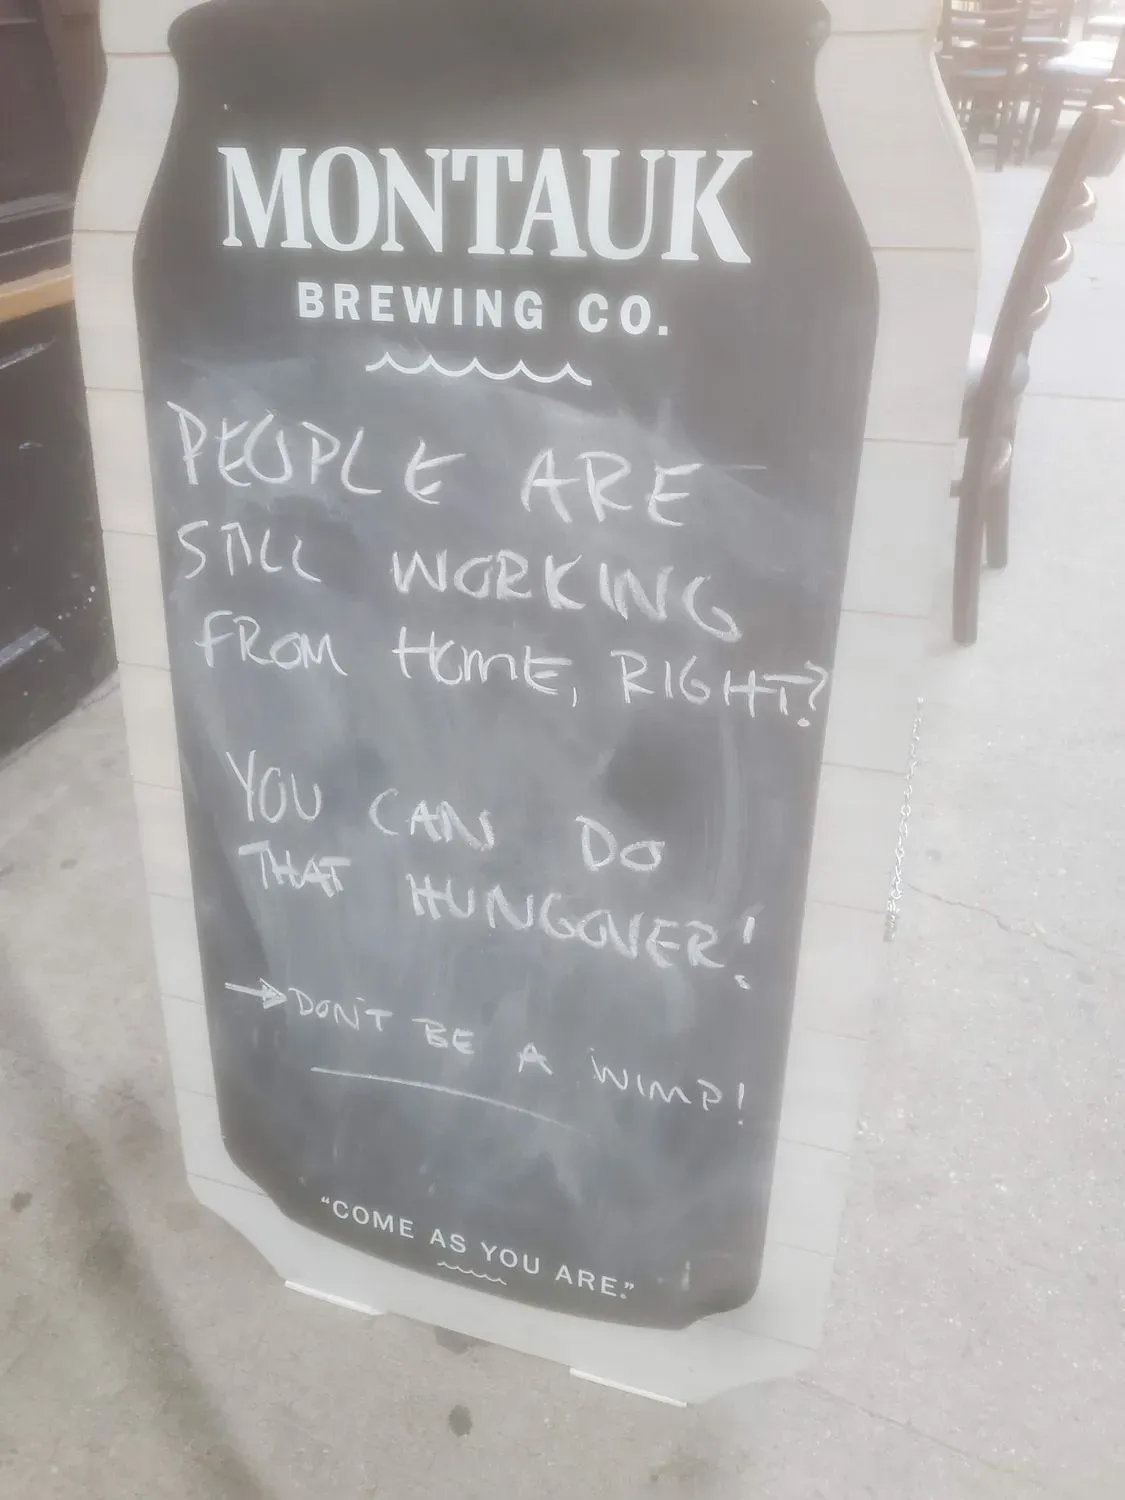 MONTAUK
BREWING CO.
PEOPLE ARE
STILL WORKING
FROM HOME, RIGHT?
YOU CAN DO
THAT HUNGOVER!
→DON'T BE A WIMP!
"COME AS YOU ARE."